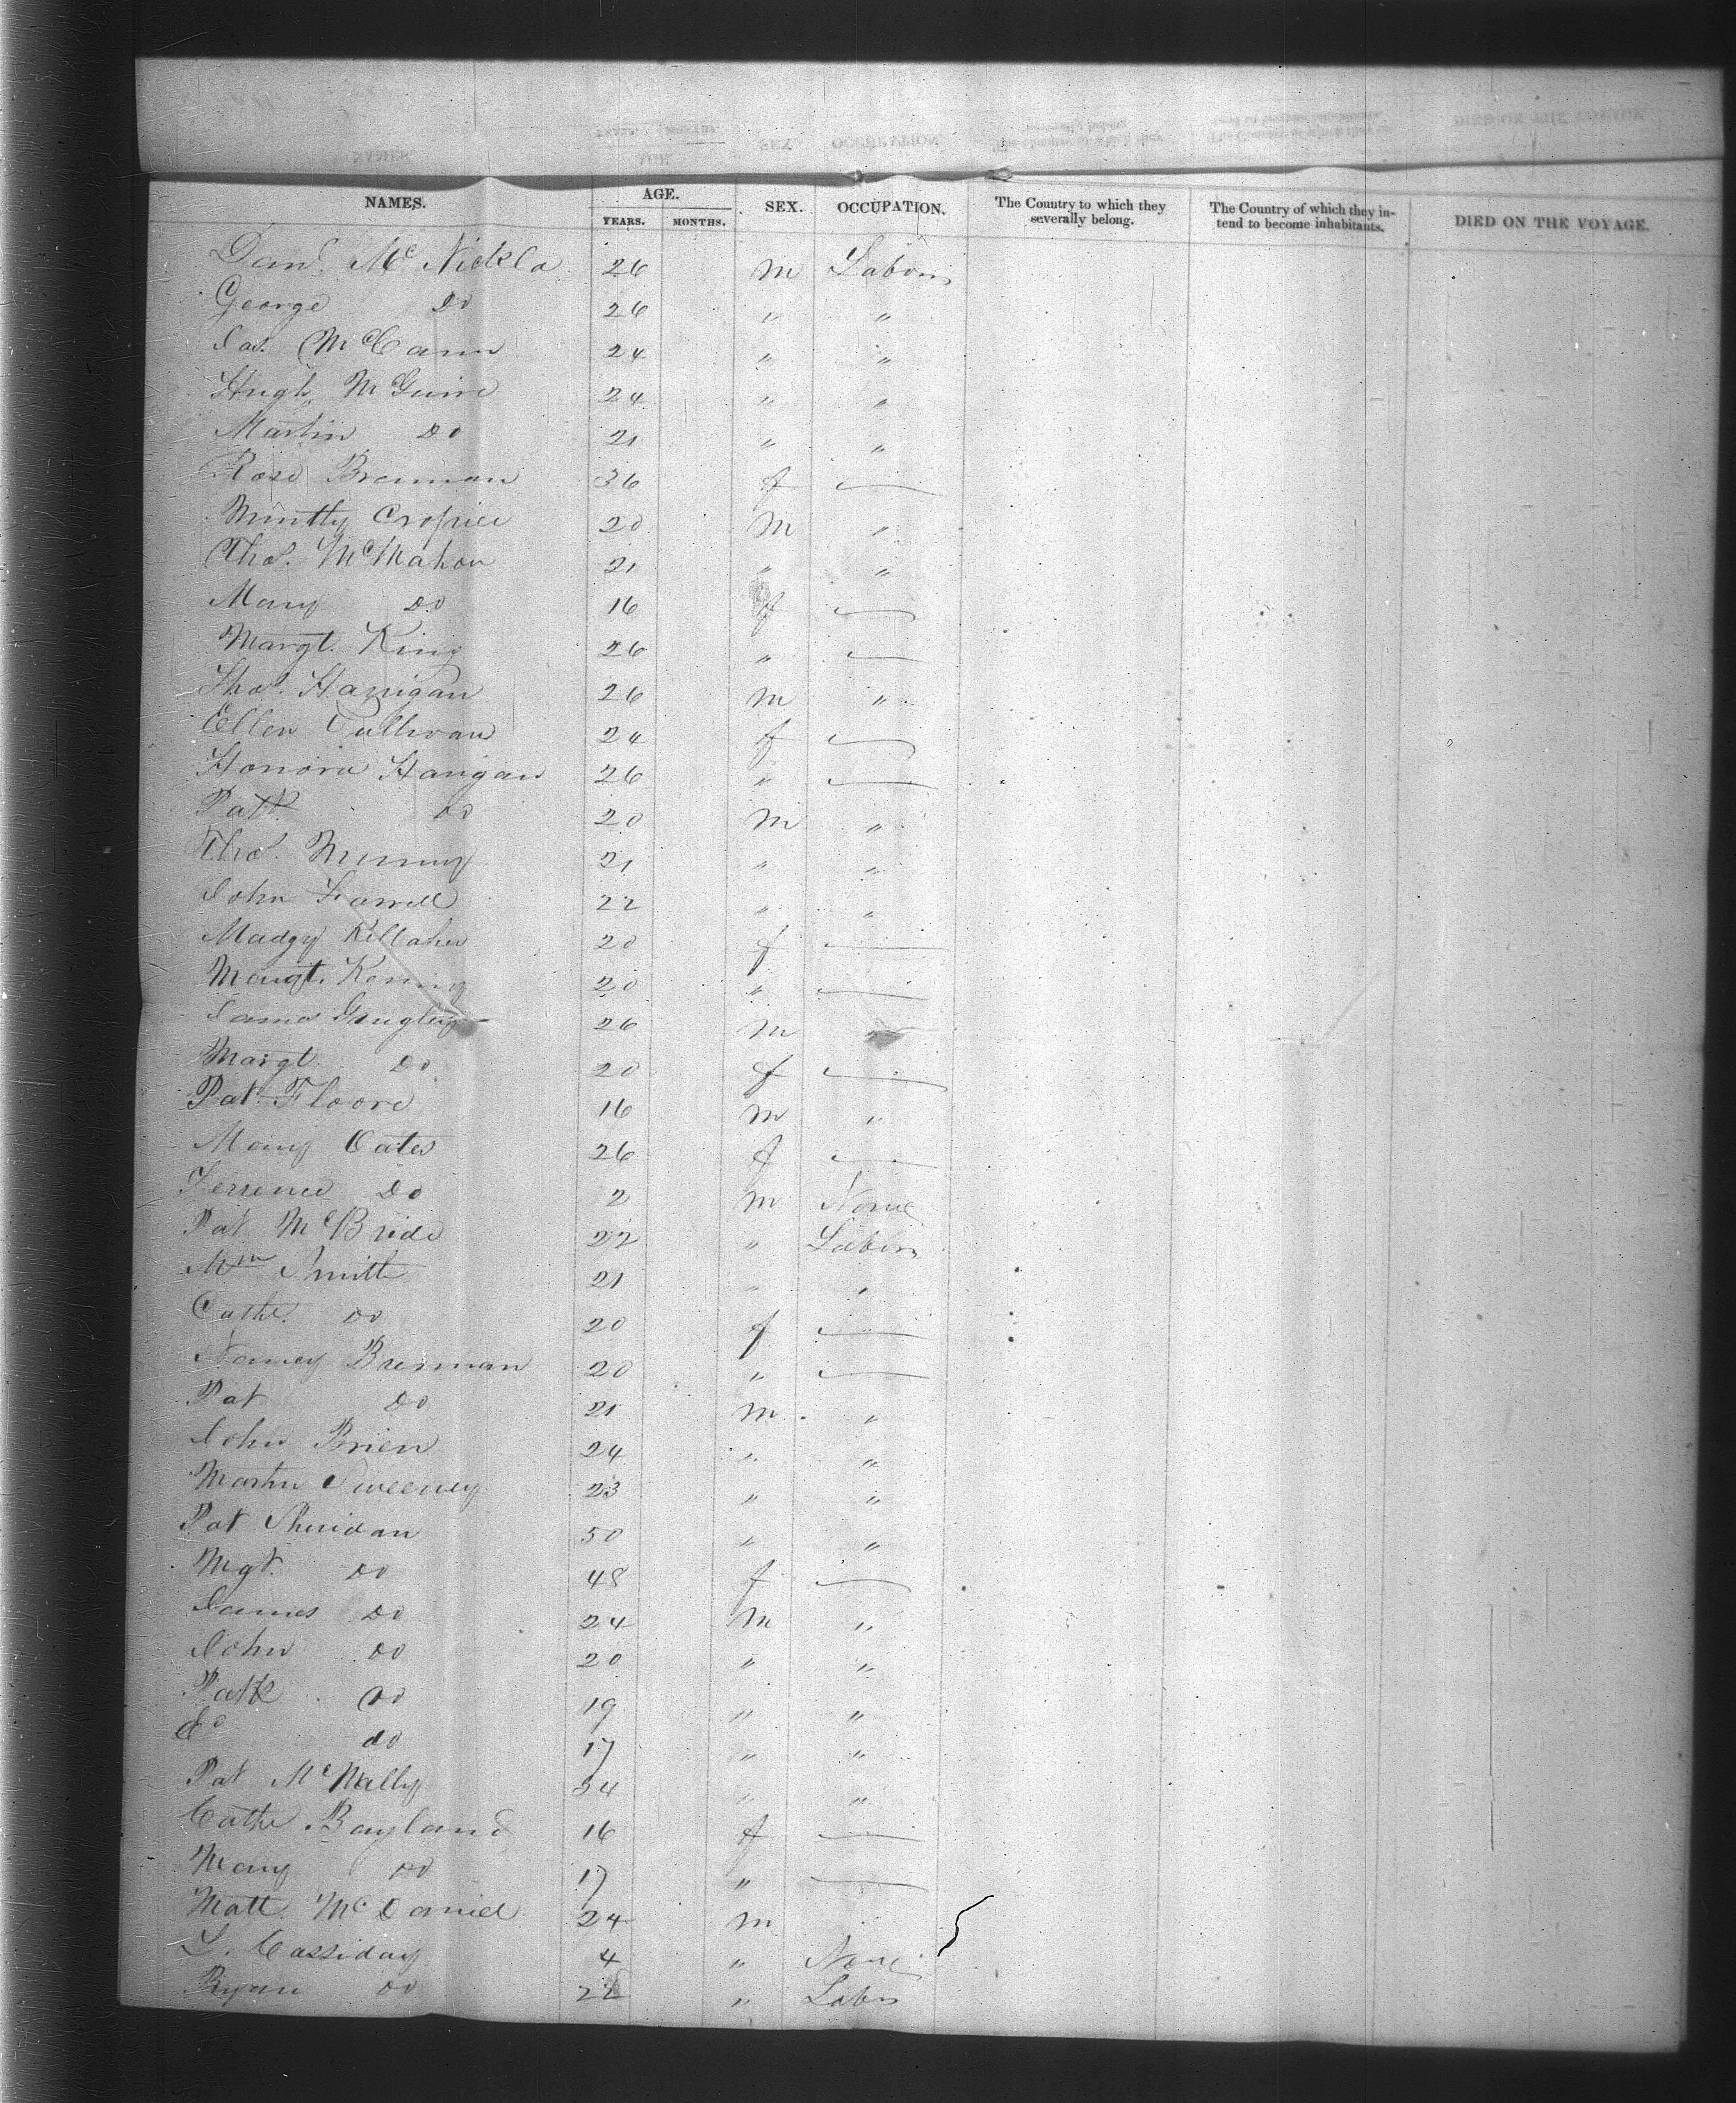 NAMES. AGE. SEX. OCCUPATION. The Country to which they severally belong. The Country of which they in-tend to become inhabitants. DIED ON THE VOYAGE.
YEARS. MONTHS.
Danl. Mc Nickla 26 m Labor
George Do 26 " "
Jas. McCann 24 " "
Hugh McGuire 24 " "
Martin Do 21 " "
Rose Brennan 36 f —
20 m "
Thos. McMahon 21 " "
Mary Do 16 f —
Margt. King 26 " —
Thos. Hanigan 26 m "
Ellen Sullivan 24 f —
Honora Hanigan 26 " —
Patk Do 20 m "
Thos. 21 " "
John Farrell 22 " "
Madgy Killaher 20 f —
Margt. Kenny 20 " —
James 26 m "
Margt. Do 20 f —
Pat. Floore 16 m "
Mary Oates 26 f —
Terrence Do 2 m None
Pat McBride 22 " Labor
Wm Smith 21 " "
Cathe. Do 20 f —
Nancy Brennan 20 " —
Pat Do 21 m "
John Brien 24 " "
Martin Sweeney 23 " "
Pat Sheridan 50 " "
Mgt. Do 48 f —
James Do 24 m "
John Do 20 " "
Patk Do 19 " "
do 17 " "
Pat McNally 34 " "
Cathe Bayland 16 f —
Mary Do 17 " —
Matt McDaniel 24 m
L. Cassiday 4 " None
Ryan Do 22 " Labr